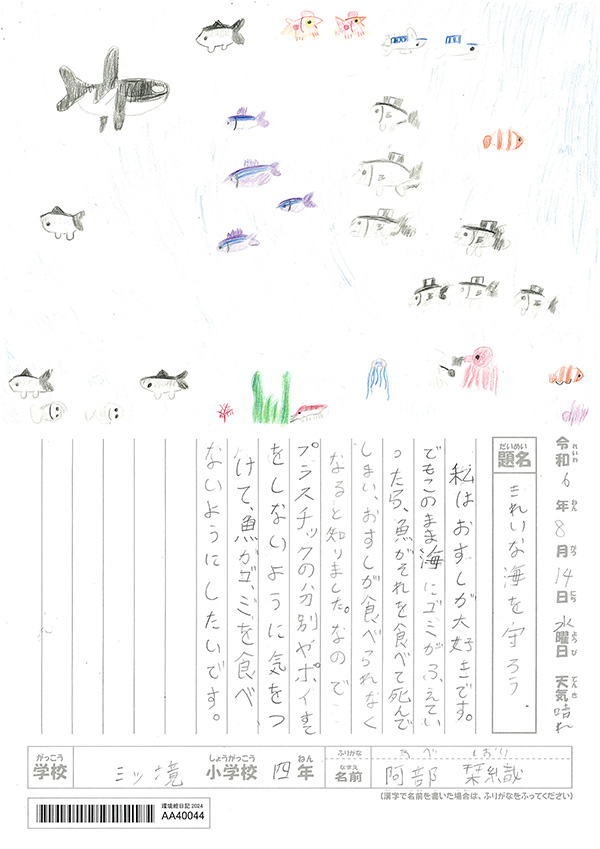 令和6年8月14日水曜日 天気晴れ
れいわ ねん がつ にち ようび てんき
だいめい
題名 きれいな海を守ろう
私はおすしが大好きです。
でもこのまま海にゴミがふえてい
ったら、魚がそれを食べて死んで
しまい、おすしが食べられなく
なると知りました。なので
プラスチックの分別やポイすて
をしないように気をつ
けて、魚がゴミを食べ
ないようにしたいです。
がっこう しょうがっこう ねん ふりがな あべ しおり
学校 三ッ境 小学校 四年 なまえ 名前 阿部 栞
(漢字で名前を書いた場合は、ふりがなをふってください)
環境絵日記 2024
AA40044